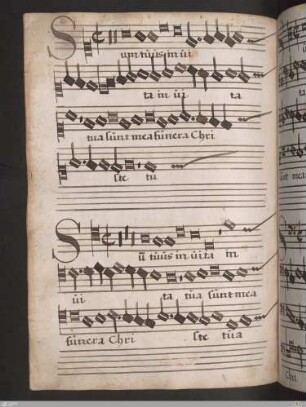 Sunt tuus in ui
ta in ui ta
tua sunt mea funera Chri
ste tu
Sū tuus in uita in
ui ta tua sunt mea
funera Chri ste tua